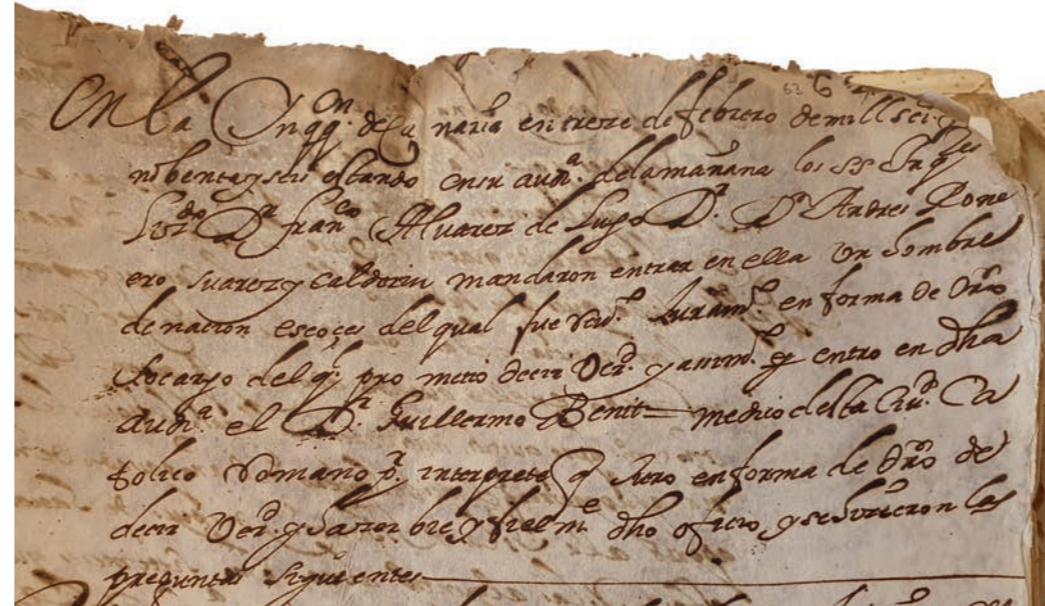 63 6
En la Inqqon de Canaria en trece de febrero de mill sei.s
nobenta y seis estando en su auda de la mañana los ss Inqres
Lizdo Dr franco Alvarez de Lugo Dr Dn Andres Rome
ero suarez y Calderin mandaron entrar en ella un hombre
de nacion escoçes del qual fue Reuo Juramto en forma de dro
so cargo del q pro metio decir Verd. y assimo q entro en dha
auda el Dr Guillermo Benit = medico desta Ciud Ca
tolico Romano pr interprete q Juro en forma de dro de
decir Verd. y hazer bie y fielmte dho oficio, y se hicieron las
preguntas siguientes